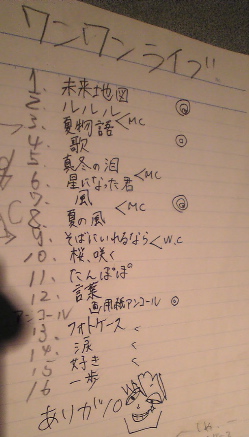 ワンワンライブ
1. 未来地図
2. ルルル ◎
3. 夏物語 <MC
4. 歌 ◎
5. 真冬の泪
6. 星になった君 <MC
7. 風 ◎
8. 夏の風 <MC
9. そばにいれるなら <W.C
10. 桜、咲く
11. たんぽぽ
12. 言葉
画用紙アンコール ◎
アンコール
13. フォトゲース <
14. 涙 <
15. 好き <
16. 一歩
ありが10